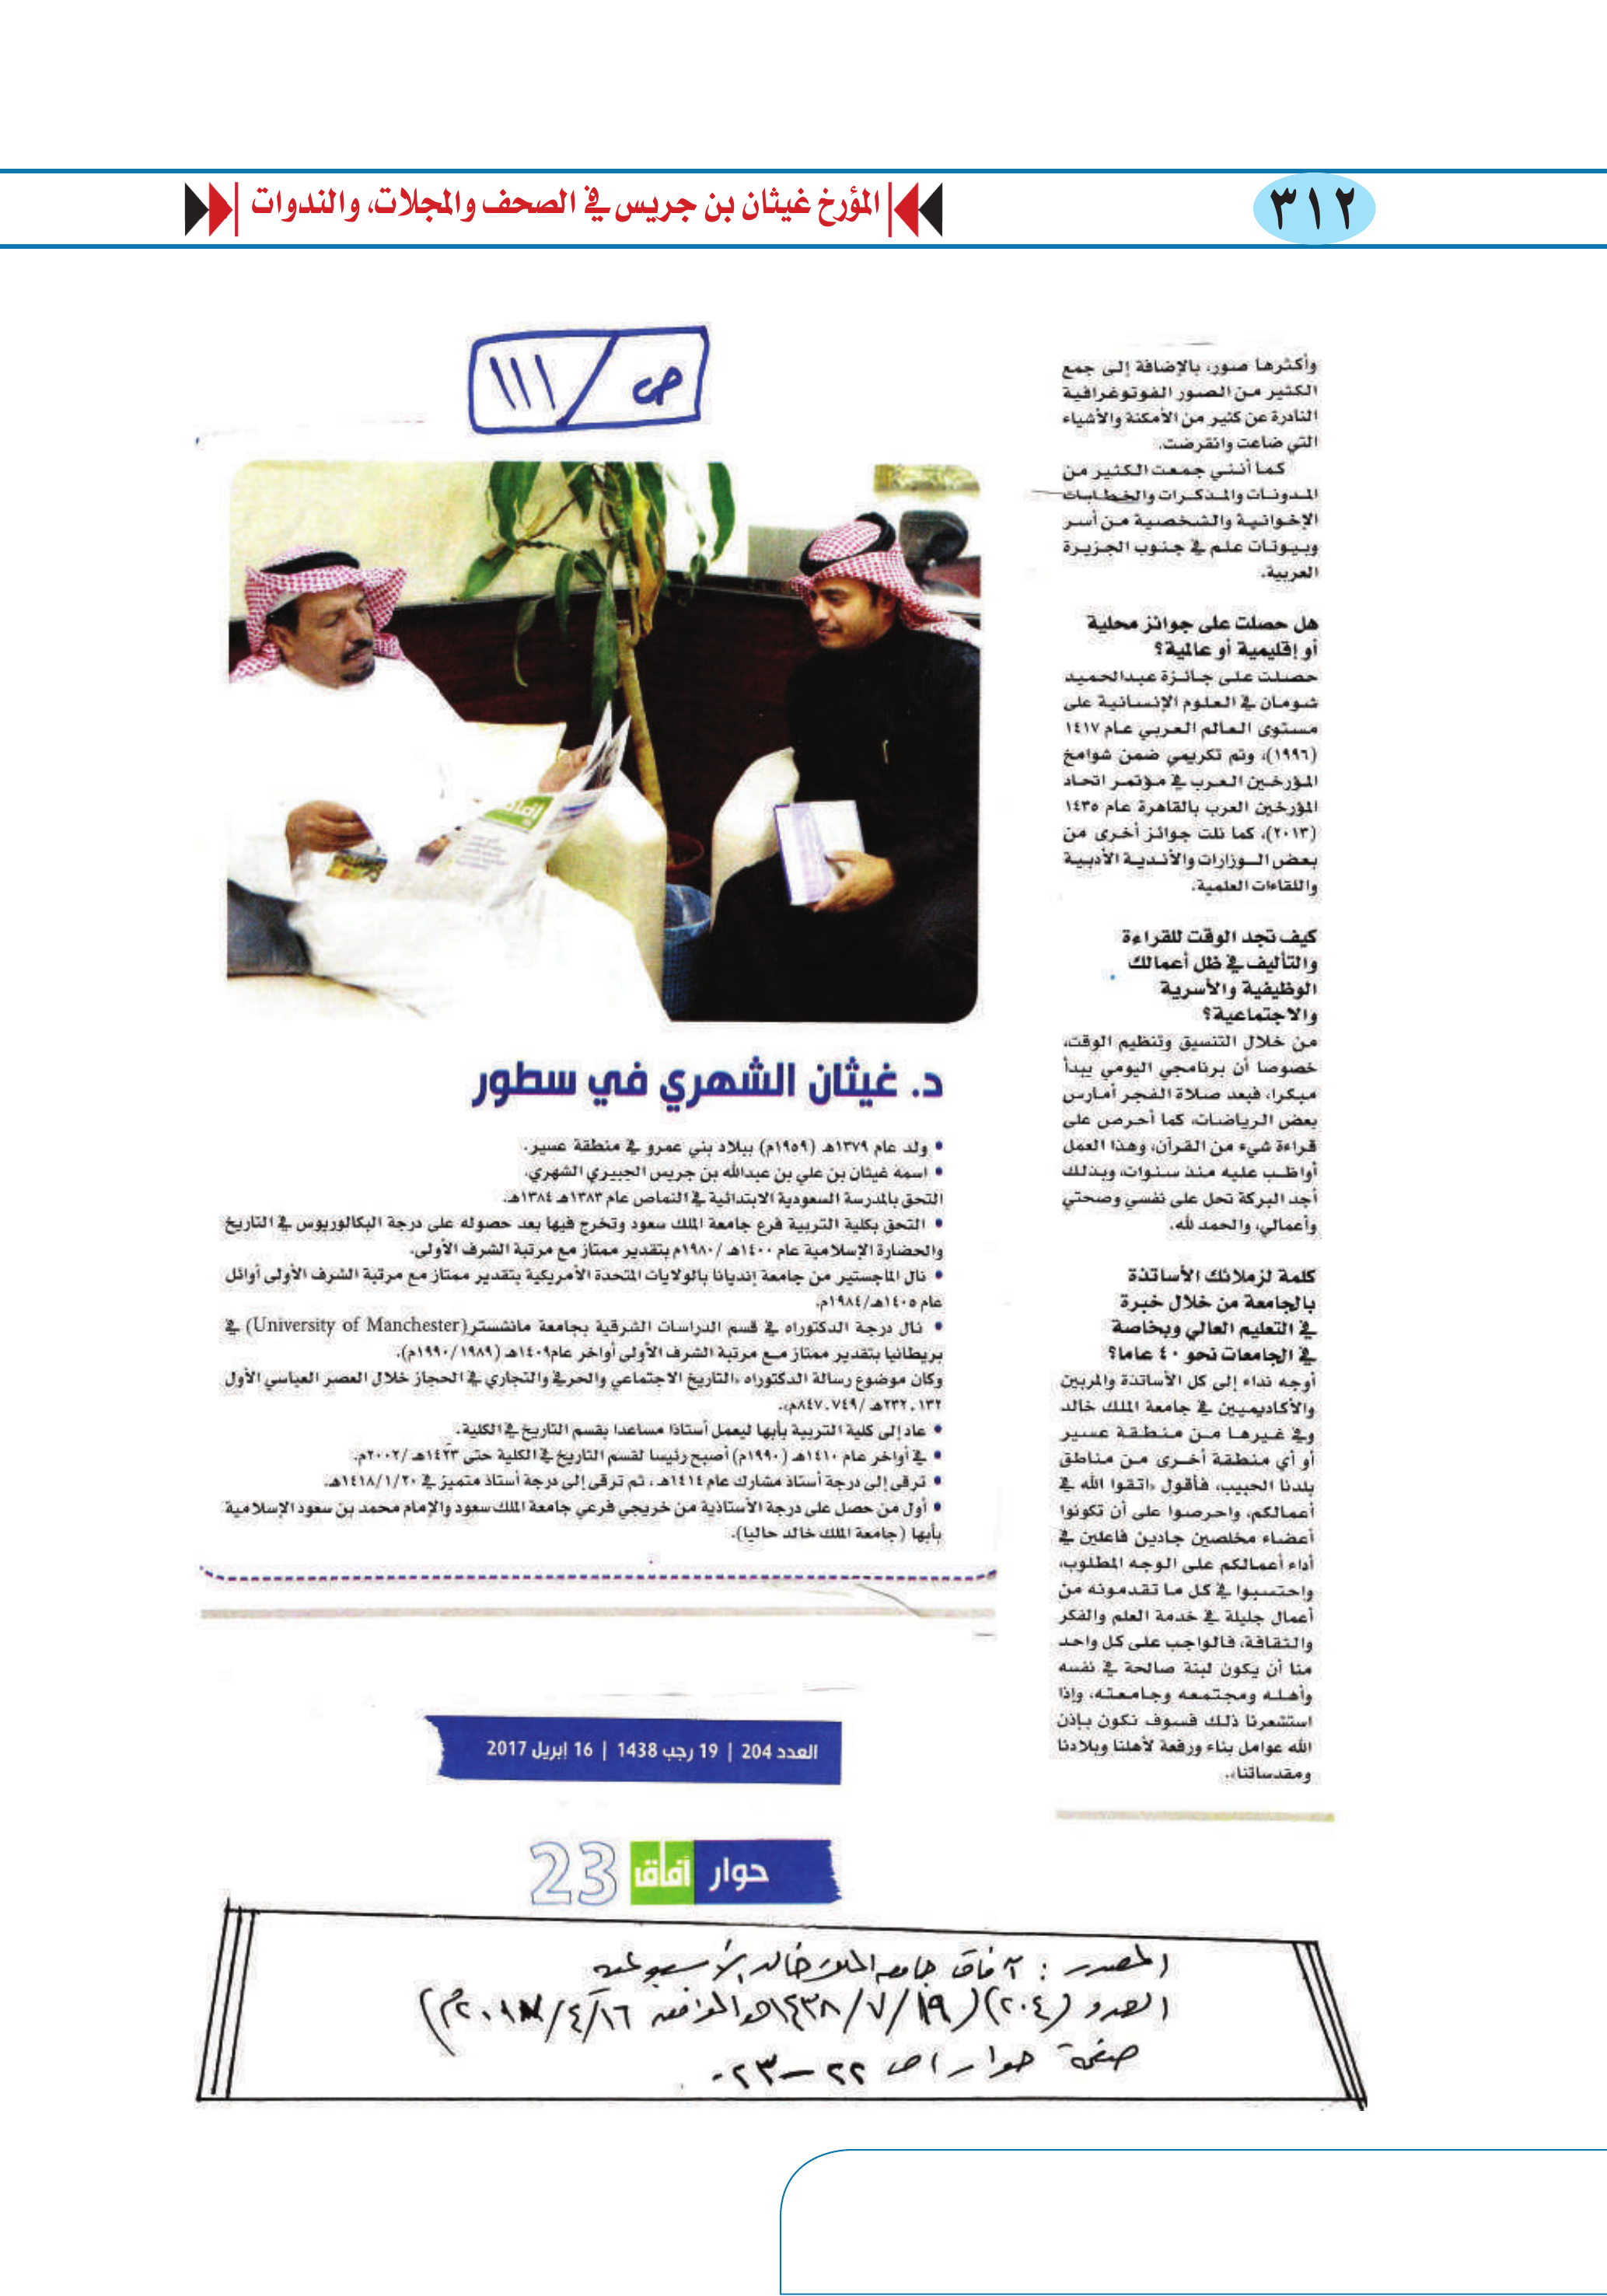 ٣١٢
المؤرخ غيثان بن جريس في الصحف والمجلات، والندوات
ص / ١١١
وأكثرها صور، بالإضافة إلى جمع
الكثير من الصور الفوتوغرافية
النادرة عن كثير من الأمكنة والأشياء
التي ضاعت وانقرضت.
كما أنني جمعت الكثير من
المدونات والمذكرات والخطابات
الإخوانية والشخصية من أسر
وبيوتات علم في جنوب الجزيرة
العربية.
هل حصلت على جوائز محلية
أو إقليمية أو عالمية؟
حصلت على جائزة عبدالحميد
شومان في العلوم الإنسانية على
مستوى العالم العربي عام ١٤١٧
(١٩٩٦)، وتم تكريمي ضمن شوامخ
المؤرخين العرب في مؤتمر اتحاد
المؤرخين العرب بالقاهرة عام ١٤٣٥
(٢٠١٣)، كما نلت جوائز أخرى من
بعض الوزارات والأندية الأدبية
واللقاءات العلمية.
كيف تجد الوقت للقراءة
والتأليف في ظل أعمالك
الوظيفية والأسرية
والاجتماعية؟
من خلال التنسيق وتنظيم الوقت،
خصوصا أن برنامجي اليومي يبدأ
مبكرا، فبعد صلاة الفجر أمارس
بعض الرياضات، كما أحرص على
قراءة شيء من القرآن، وهذا العمل
أواظب عليه منذ سنوات، وبذلك
أجد البركة تحل على نفسي وصحتي
وأعمالي، والحمد لله.
كلمة لزملائك الأساتذة
بالجامعة من خلال خبرة
في التعليم العالي وبخاصة
في الجامعات نحو ٤٠ عاما؟
أوجه نداء إلى كل الأساتذة والمربين
والأكاديميين في جامعة الملك خالد
وفي غيرها من منطقة عسير
أو أي منطقة أخرى من مناطق
بلدنا الحبيب، فأقول «اتقوا الله في
أعمالكم، واحرصوا على أن تكونوا
أعضاء مخلصين جادين فاعلين في
أداء أعمالكم على الوجه المطلوب،
واحتسبوا في كل ما تقدمونه من
أعمال جليلة في خدمة العلم والفكر
والثقافة، فالواجب على كل واحد
منا أن يكون لبنة صالحة في نفسه
وأهله ومجتمعه وجامعته، وإذا
استشعرنا ذلك فسوف نكون بإذن
الله عوامل بناء ورفعة لأهلنا وبلادنا
ومقدساتنا».
آفاق
د. غيثان الشهري في سطور
• ولد عام ١٣٧٩هـ (١٩٥٩م) ببلاد بني عمرو في منطقة عسير.
• اسمه غيثان بن علي بن عبدالله بن جريس الجبيري الشهري.
التحق بالمدرسة السعودية الابتدائية في النماص عام ١٣٨٣هـ ١٣٨٤هـ.
• التحق بكلية التربية فرع جامعة الملك سعود وتخرج فيها بعد حصوله على درجة البكالوريوس في التاريخ
والحضارة الإسلامية عام ١٤٠٠هـ /١٩٨٠م بتقدير ممتاز مع مرتبة الشرف الأولى.
• نال الماجستير من جامعة إنديانا بالولايات المتحدة الأمريكية بتقدير ممتاز مع مرتبة الشرف الأولى أوائل
عام ١٤٠٥هـ/١٩٨٤م.
• نال درجة الدكتوراه في قسم الدراسات الشرقية بجامعة مانشستر(University of Manchester) في
بريطانيا بتقدير ممتاز مع مرتبة الشرف الأولى أواخر عام١٤٠٩هـ (١٩٨٩/ ١٩٩٠م).
وكان موضوع رسالة الدكتوراه «التاريخ الاجتماعي والحرفي والتجاري في الحجاز خلال العصر العباسي الأول
١٣٢ـ٢٣٢هـ /٧٤٩ـ٨٤٧م».
• عاد إلى كلية التربية بأبها ليعمل أستاذا مساعدا بقسم التاريخ في الكلية.
• في أواخر عام ١٤١٠هـ (١٩٩٠م) أصبح رئيسا لقسم التاريخ في الكلية حتى ١٤٢٣هـ /٢٠٠٢م.
• ترقى إلى درجة أستاذ مشارك عام ١٤١٤هـ ، ثم ترقى إلى درجة أستاذ متميز في ١٤١٨/١/٢٠هـ.
• أول من حصل على درجة الأستاذية من خريجي فرعي جامعة الملك سعود والإمام محمد بن سعود الإسلامية
بأبها (جامعة الملك خالد حاليا).
العدد 204 | 19 رجب 1438 | 16 إبريل 2017
حوار آفاق 23
المصدر : آفاق جامعة الملك خالد الأسبوعية
العدد (٢٠٤) (١٩/٧/١٤٣٨هـ الموافق ١٦/٤/٢٠١٧م)
صفحة حوار ص ٢٢ – ٢٣.